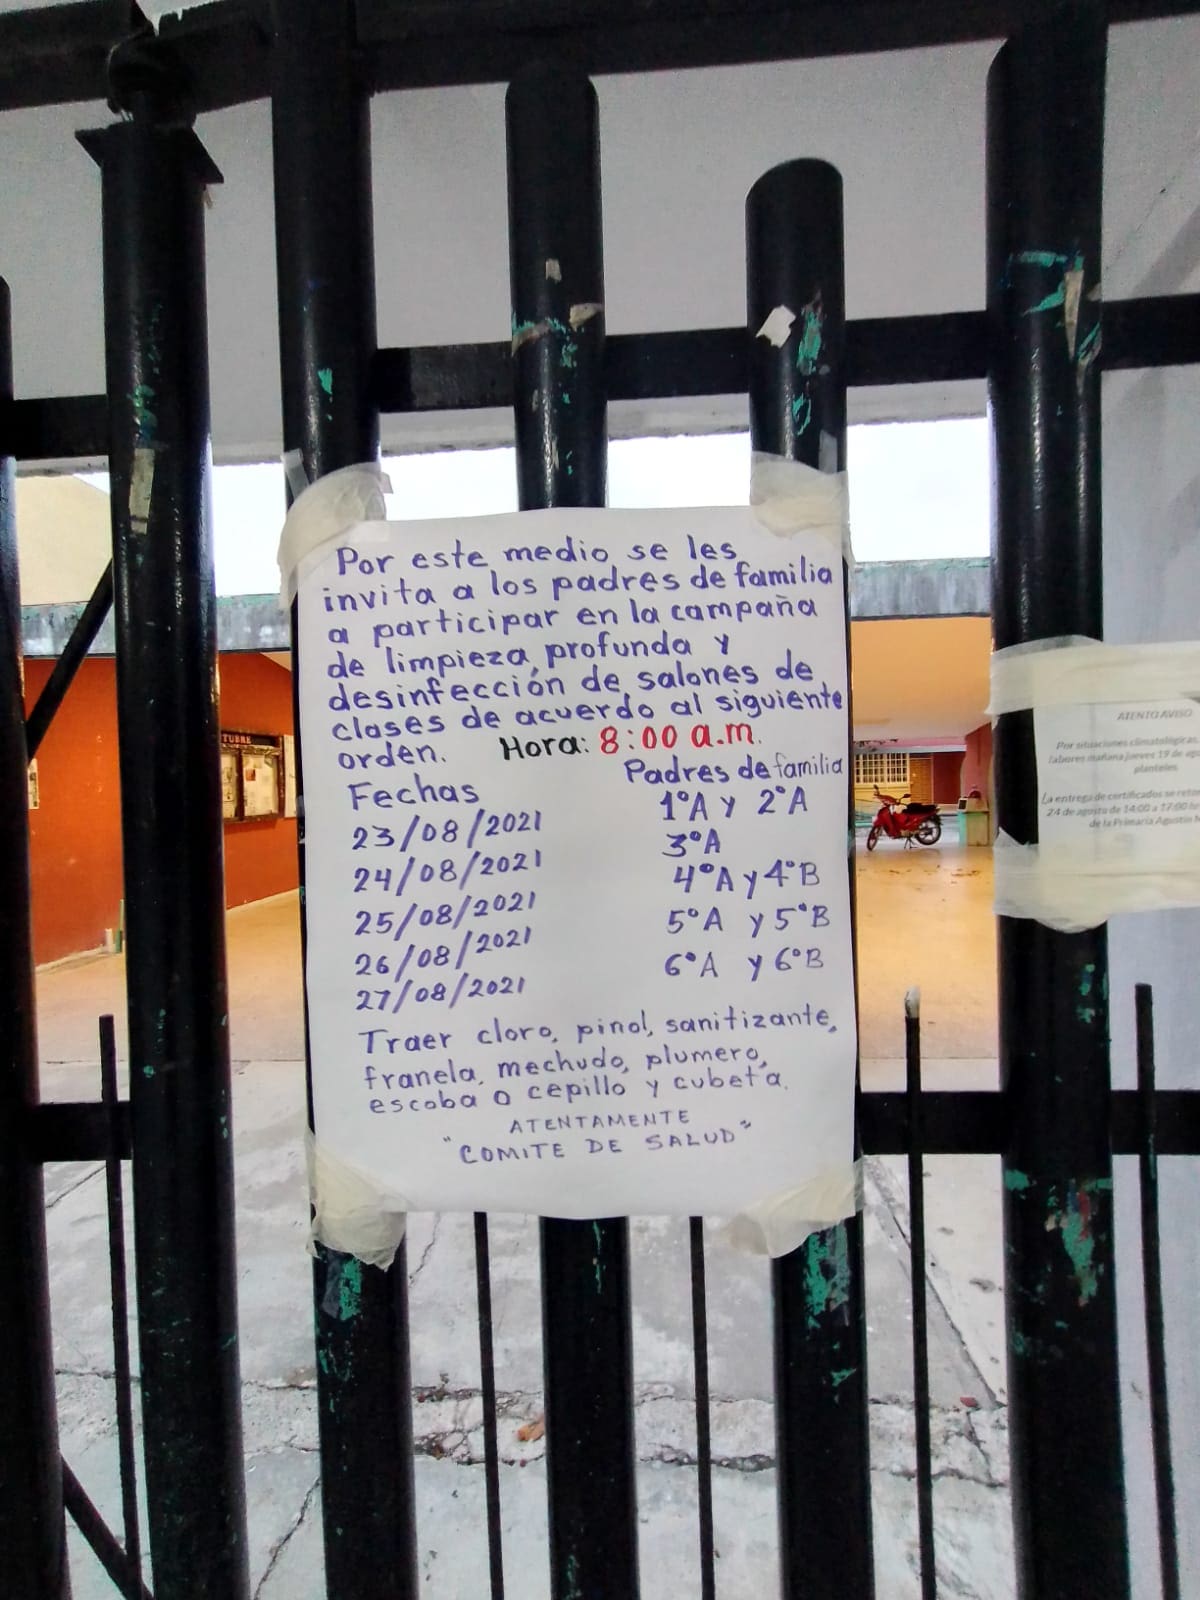 Por este medio se les
invita a los padres de familia
a participar en la campaña
de limpieza profunda y
desinfección de salones de
clases de acuerdo al siguiente
orden. Hora: 8:00 a.m.
Fechas Padres de familia
23/08/2021 1°A y 2°A
24/08/2021 3°A
25/08/2021 4°A y 4°B
26/08/2021 5°A y 5°B
27/08/2021 6°A y 6°B
Traer cloro, pinol, sanitizante,
franela, mechudo, plumero,
escoba o cepillo y cubeta.
ATENTAMENTE
"COMITE DE SALUD"
ATENTO AVISO
Por situaciones climatológicas
labores mañana jueves 19 de
planteles
La entrega de certificados se
24 de agosto de 14:00 a 17:00
de la Primaria Agustín
TUBRE